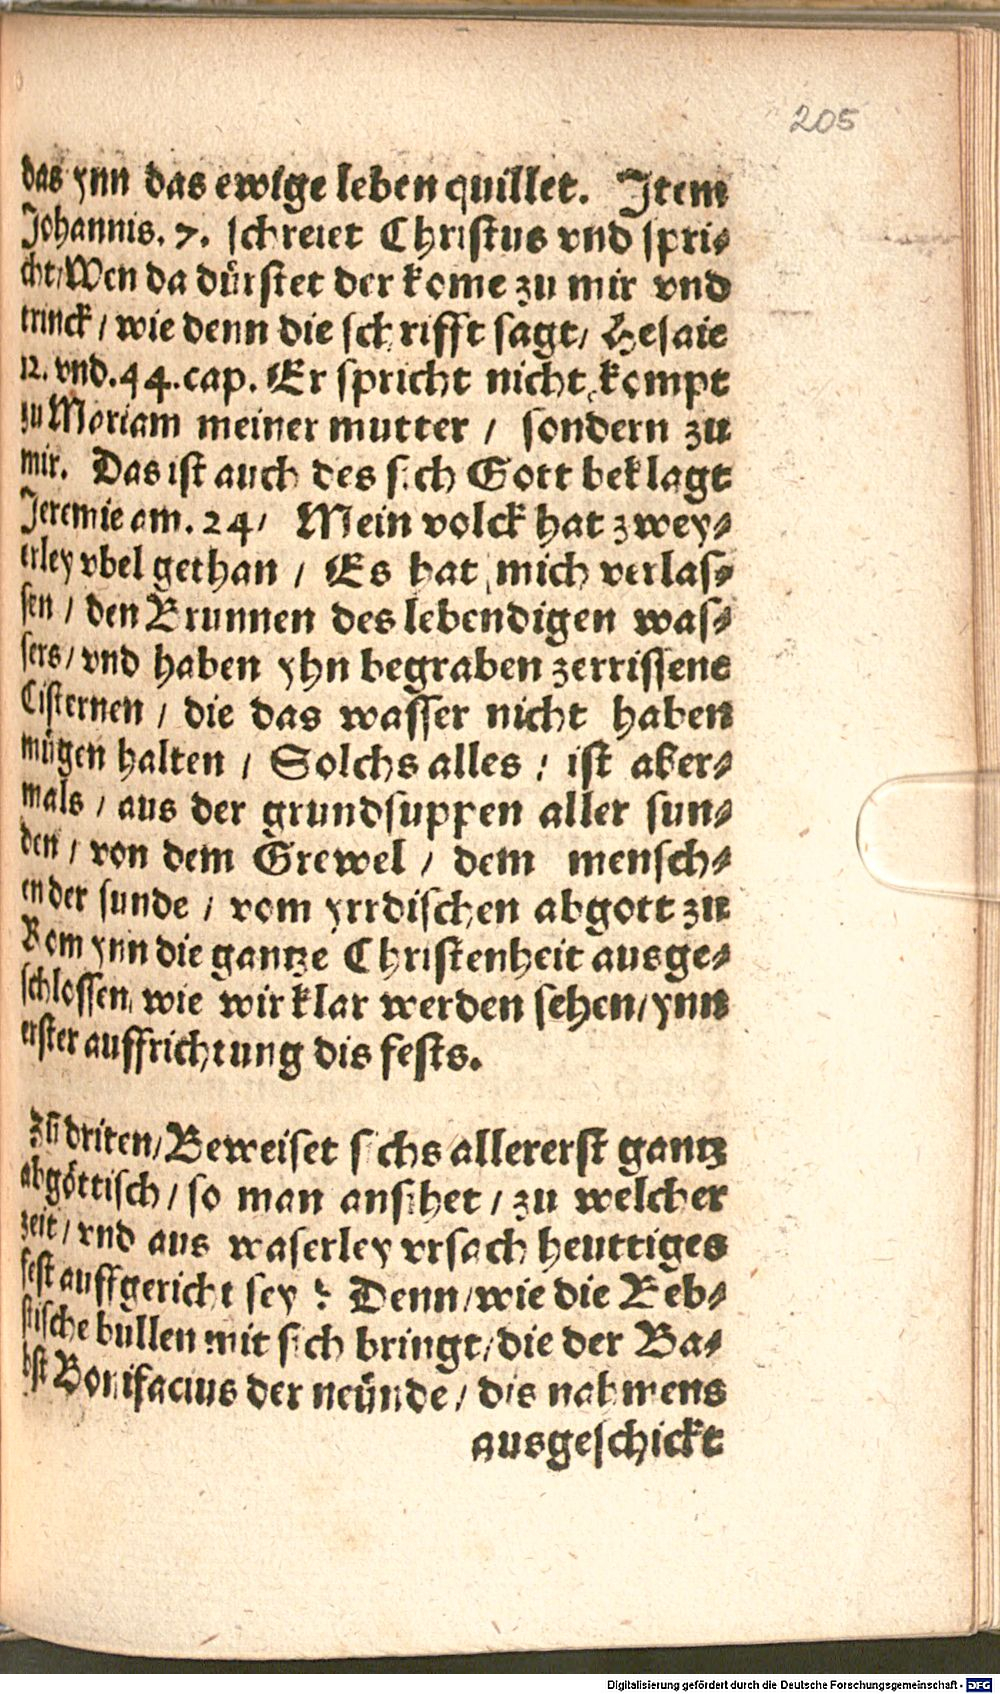 205
das ynn das ewige leben quillet. Item
Johannis. 7. schreiet Christus vnd spri⸗
cht/ Wen da dürstet der kome zu mir vnd
trinck / wie denn die schrifft sagt/ Hesaie
12. vnd. 44. cap. Er spricht nicht kompt
zu Mariam meiner mutter / sondern zu
mir. Das ist auch des sich Gott beklagt
Jeremie am. 24/ Mein volck hat zwey⸗
erley vbel gethan / Es hat mich verlas⸗
sen / den Brunnen des lebendigen was⸗
sers/ vnd haben yhn begraben zerrissene
Cisternen / die das wasser nicht haben
mügen halten / Solchs alles / ist aber⸗
mals / aus der grundsuppen aller sun⸗
den / von dem Grewel / dem mensch⸗
en der sunde / vom yrrdischen abgott zu
Rom ynn die gantze Christenheit ausge⸗
schlossen/ wie wir klar werden sehen/ ynn
erster auffrichtung dis fests.
Zū driten/ Beweiset sichs allererst gantz
abgöttisch / so man ansihet / zu welcher
zeit / vnd aus waserley vrsach heuttiges
fest auffgericht sey ? Denn/ wie die Beb⸗
stische bullen mit sich bringt/ die der Ba⸗
bst Bonifacius der neünde / dis nahmens
ausgeschickt
Digitalisierung gefördert durch die Deutsche Forschungsgemeinschaft - DFG